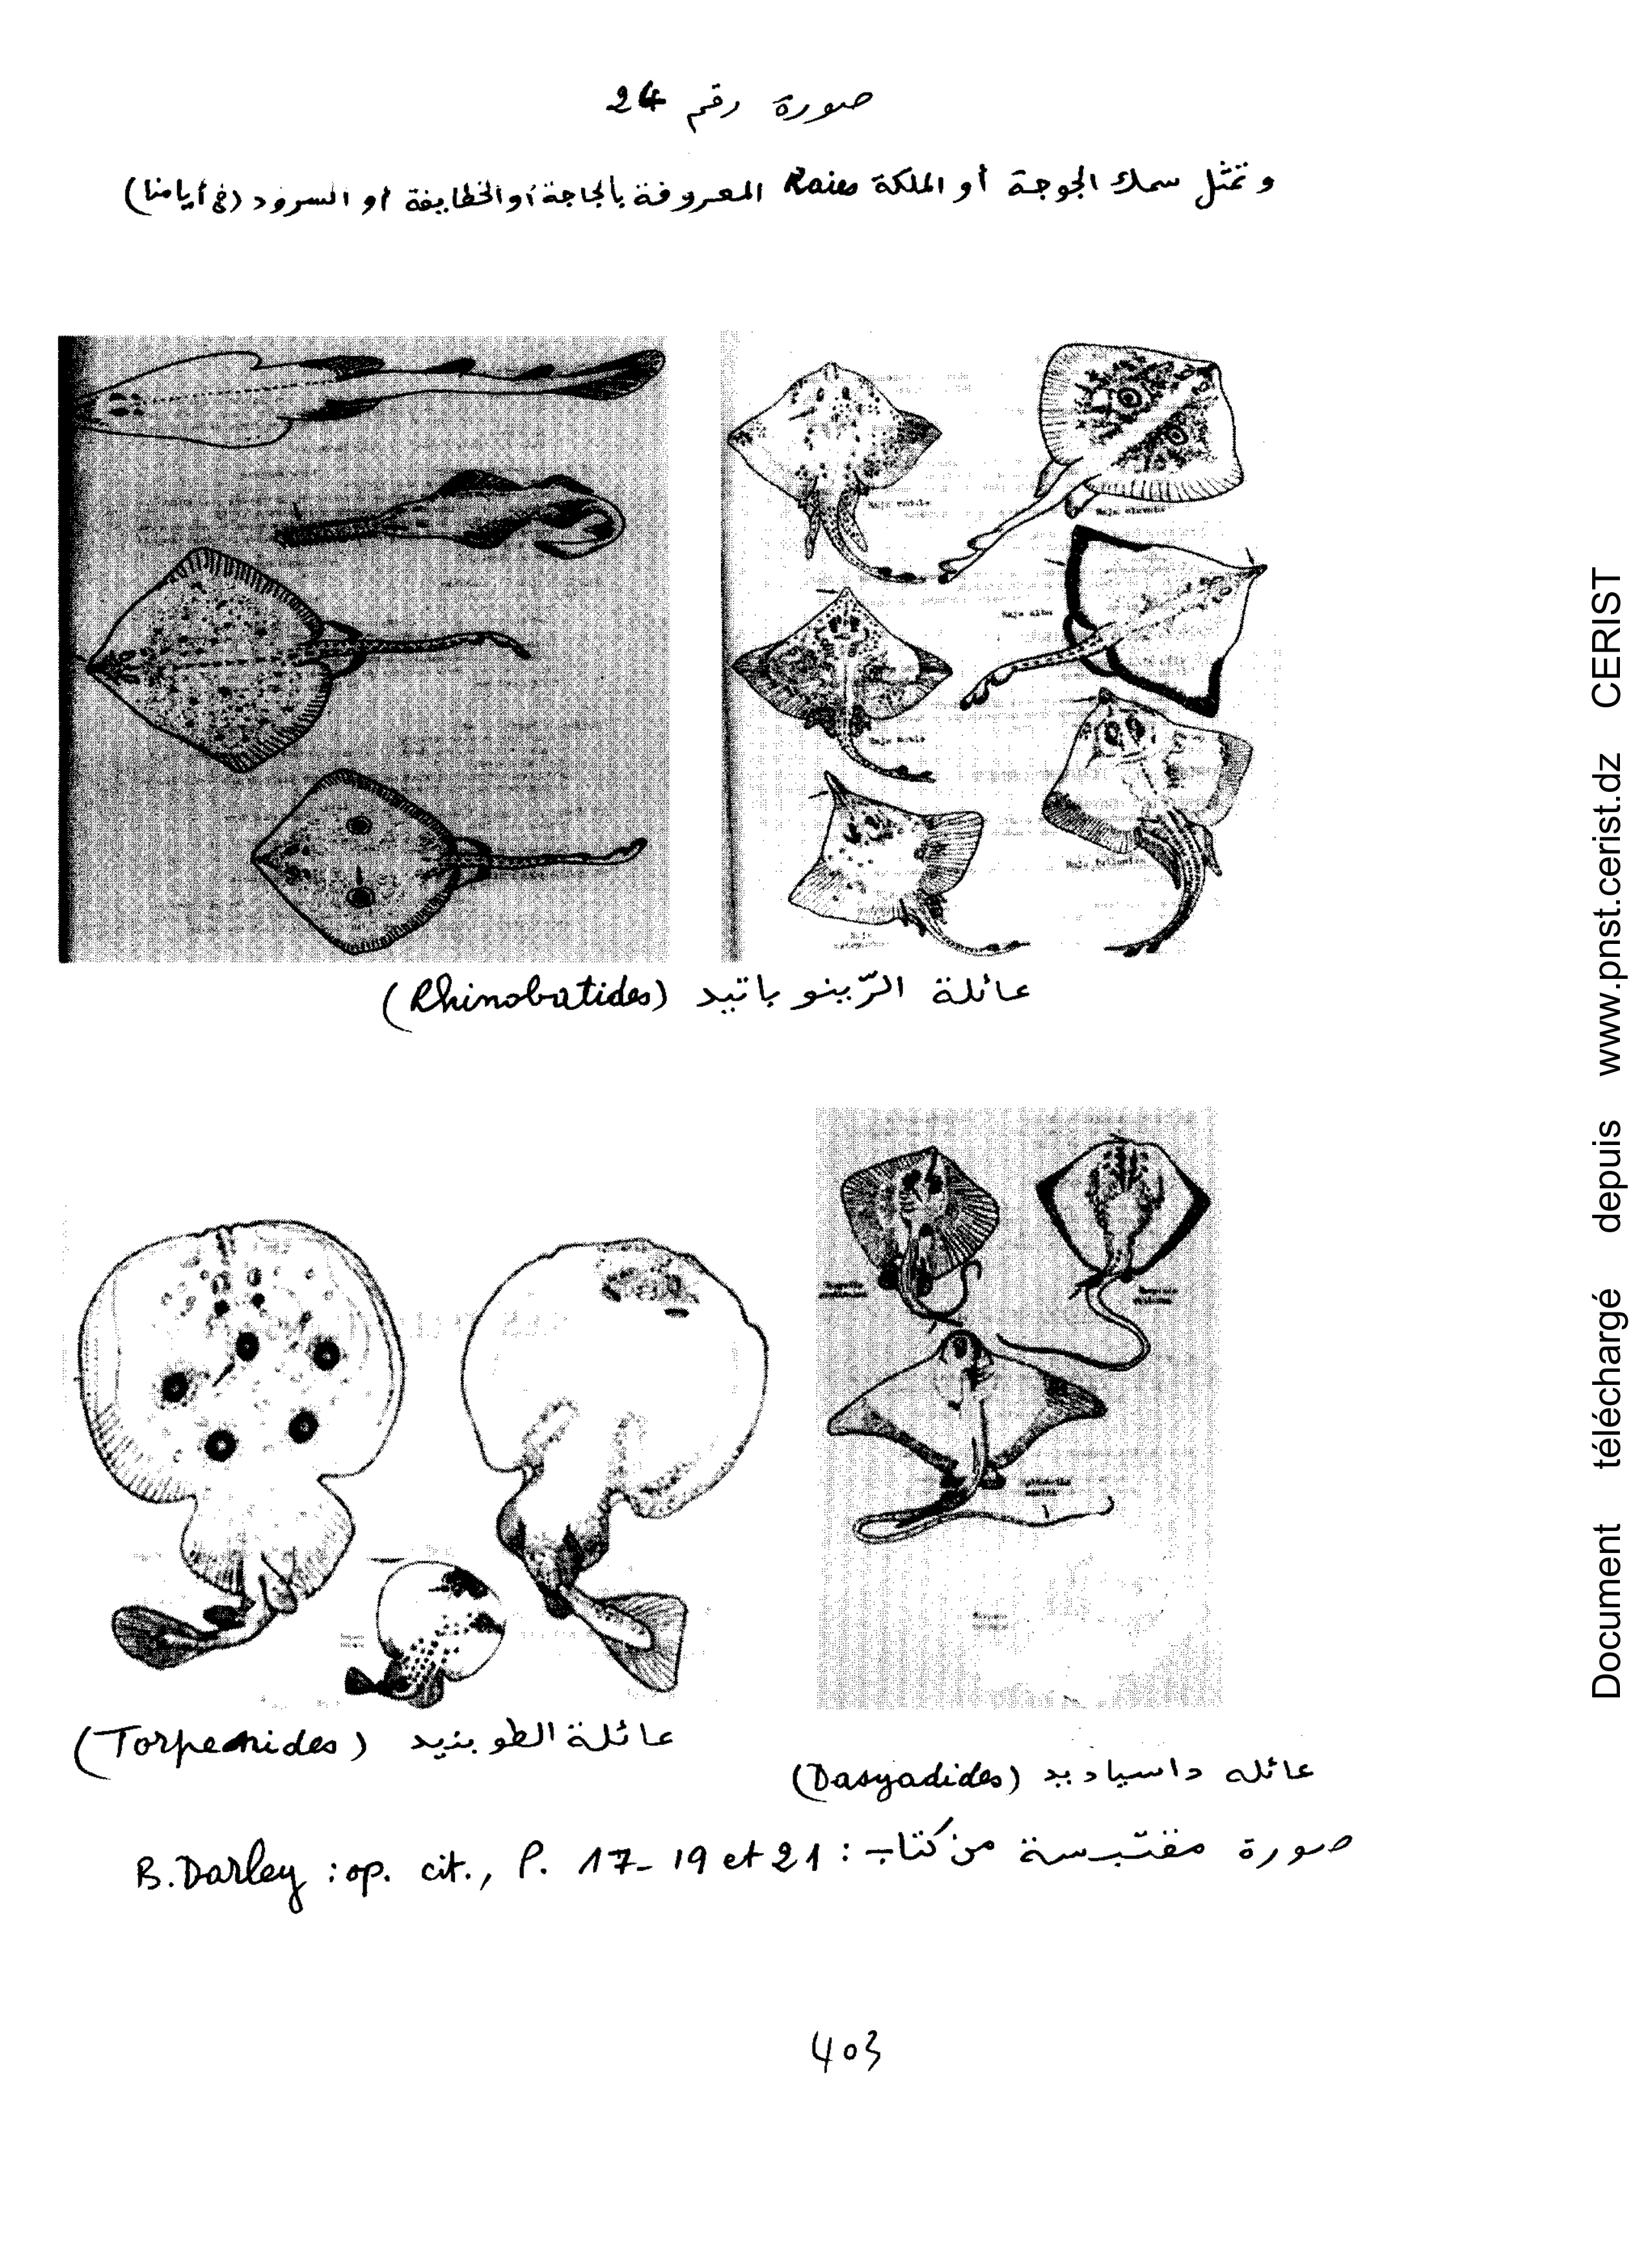 صورة رقم 24
و تمثل سمك الجوجة أو الملكة Raies المعروفة بالجاجة أو الخطايفة أو السرود (في أيامنا)
Raja alba
عائلة الرّينو باتيد (Rhinobatides)
عائلة الطو بنيد (Torpenides)
عائله داسياديد (Dasyadides)
صورة مقتبسة من كتاب : B. Darley : op. cit., P. 17-19 et 21
403
Document téléchargé depuis www.pnst.cerist.dz CERIST